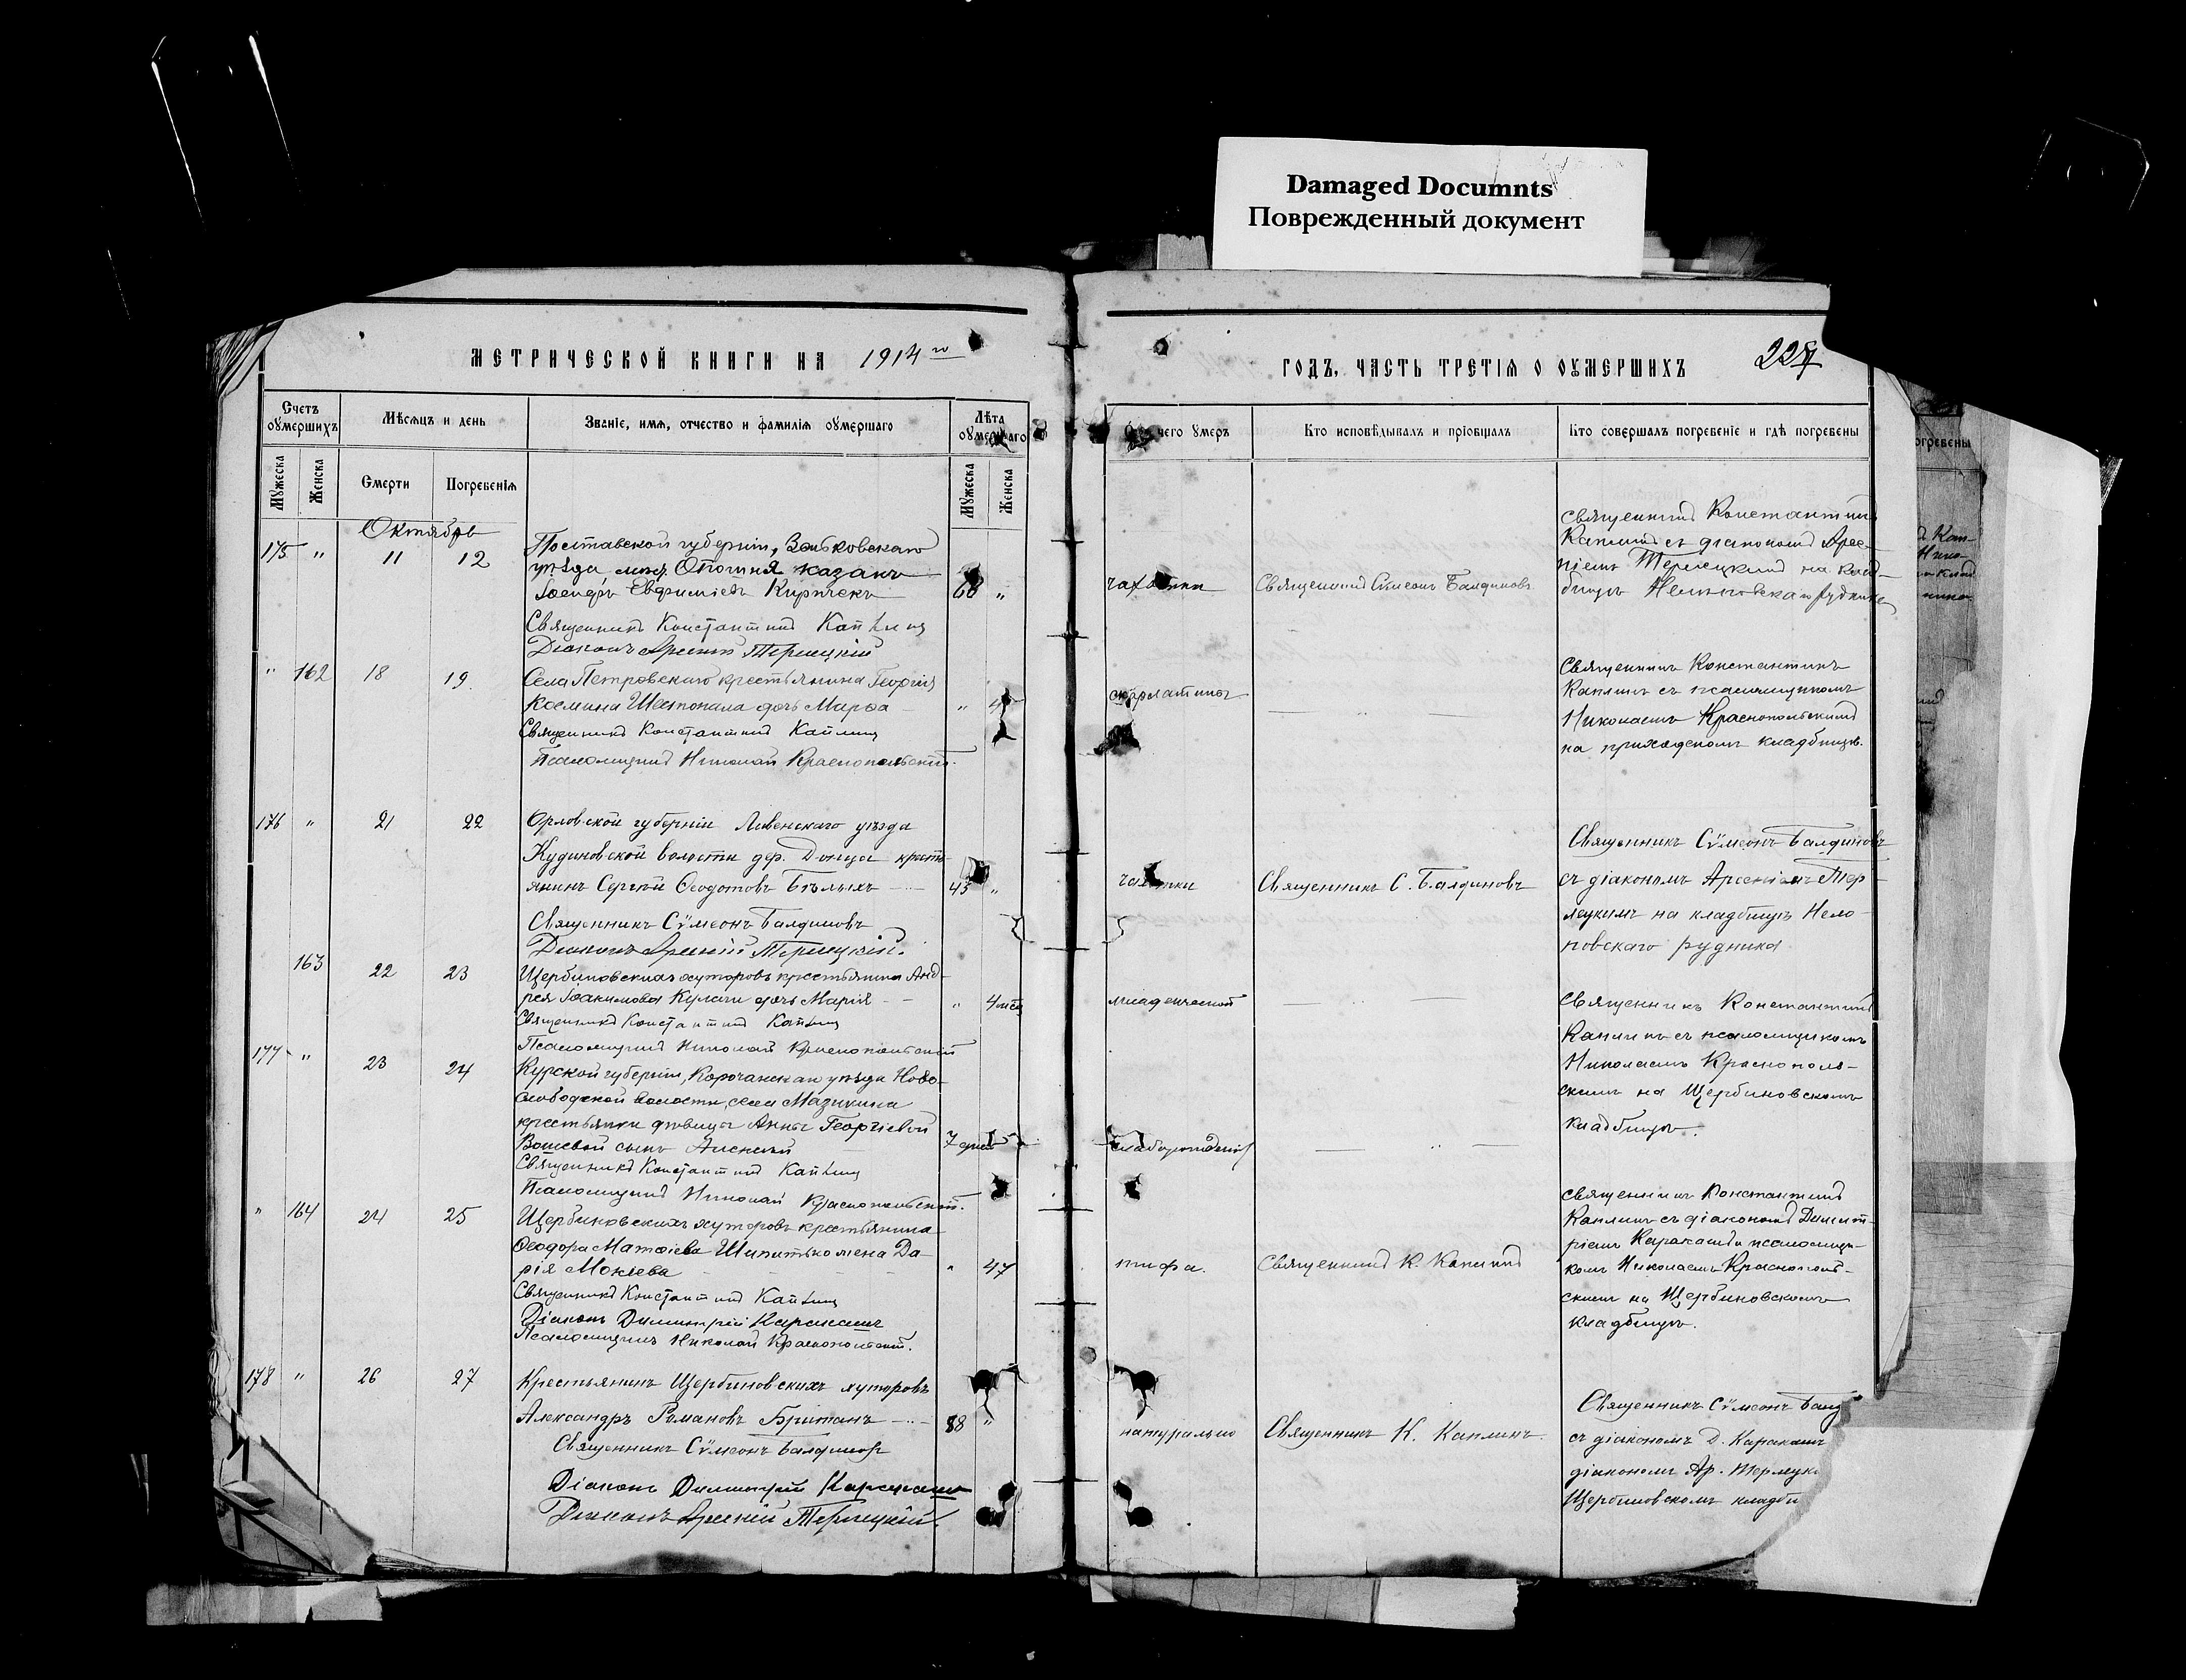 Damaged Documnts
Поврежденный документ
МЕТРИЧЕСКОЙ КНИГИ НА 1914 го
ГОДЪ, ЧАСТЬ ТРЕТІЯ О ОУМЕРШИХЪ
227
Счетъ оумершихъ
Мѣсяцъ и день
Званіе, имя, отчество и фамилія оумершаго
Лѣта оумершаго
чего умеръ
Кто исповѣдывалъ и пріобщалъ
Кто совершалъ погребеніе и гдѣ погребены
Мужеска
Женска
Смерти
Погребенія
Мужеска
Женска
огребены
Октябрь
175 " 11 12
Полтавской губерніи, Зѣньковскаго
уѣзда мест. Опошня казакъ
Іосифъ Евфиміевъ Киричекъ
68 "
чахотки
Священникъ Симеонъ Балдиновъ
Священникъ Константинъ
Каплинъ съ діакономъ Арсе-
ніемъ Терлецкимъ на клад-
бищѣ Нелѣповскаго рудника
Священникъ Константинъ Каплинъ
Діаконъ Арсеній Терлецкій
" 162 18 19
Села Петровскаго крестьянина Георгія
Космина Шаповала дочь Марѳа
" 4
скарлатины
Священникъ Константинъ
Каплинъ съ псаломщикомъ
Николаемъ Краснопольскимъ
на приходскомъ кладбищѣ.
Священникъ Константинъ Каплинъ
Псаломщикъ Николай Краснопольскій.
176 " 21 22
Орловской губерніи Ливенскаго уѣзда
Кудиновской волости дер. Донца кресть-
янинъ Сергѣй Ѳеодотовъ Бѣлыхъ
43 "
чахотки
Священникъ С. Балдиновъ
Священникъ Сѵмеонъ Балдиновъ
съ діакономъ Арсеніемъ Тер-
лецкимъ на кладбищѣ Неле-
повскаго рудника
Священникъ Сѵмеонъ Балдиновъ
Діаконъ Арсеній Терлецкій.
163 22 23
Щербиновскихъ хуторовъ крестьянина Анд-
рея Іоакимова Кулаги дочь Марія
" 4 мѣс
младенческой
Священникъ Константинъ
Каплинъ съ псаломщикомъ
Николаемъ Краснополь-
скимъ на Щербиновскомъ
кладбищѣ.
Священникъ Константинъ Каплинъ
Псаломщикъ Николай Краснопольскій
177 " 23 24
Курской губерніи, Корочанскаго уѣзда Ново-
слободской волости, села Мазикина
крестьянки дѣвицы Анны Георгіевой
сынъ Алексѣй
7 дней
слаборожденія
Священникъ Константинъ Каплинъ
Псаломщикъ Николай Краснопольскій.
" 164 24 25
Щербиновскихъ хуторовъ крестьянина
Ѳеодора Матѳіева Шипитько жена Да-
рія Мокіева
" 47
тифа.
Священникъ К. Каплинъ
Священникъ Константинъ
Каплинъ съ діакономъ Димит-
ріемъ Каракашъ и псаломщи-
комъ Николаемъ Краснополь-
скимъ на Щербиновскомъ
кладбищѣ.
Священникъ Константинъ Каплинъ
Діаконъ Димитрій Каракашъ
Псаломщикъ Николай Краснопольскій.
178 " 26 27
Крестьянинъ Щербиновскихъ хуторовъ
Александръ Романовъ Британъ
88 "
натурально
Священникъ К. Каплинъ.
Священникъ Сѵмеонъ Балд
съ діакономъ Д. Каракашъ
діакономъ Ар. Терлецк
Щербиновскомъ кладби
Священникъ Сѵмеонъ Балдиновъ
Діаконъ Димитрій Каракашъ
Діаконъ Арсеній Терлецкій.